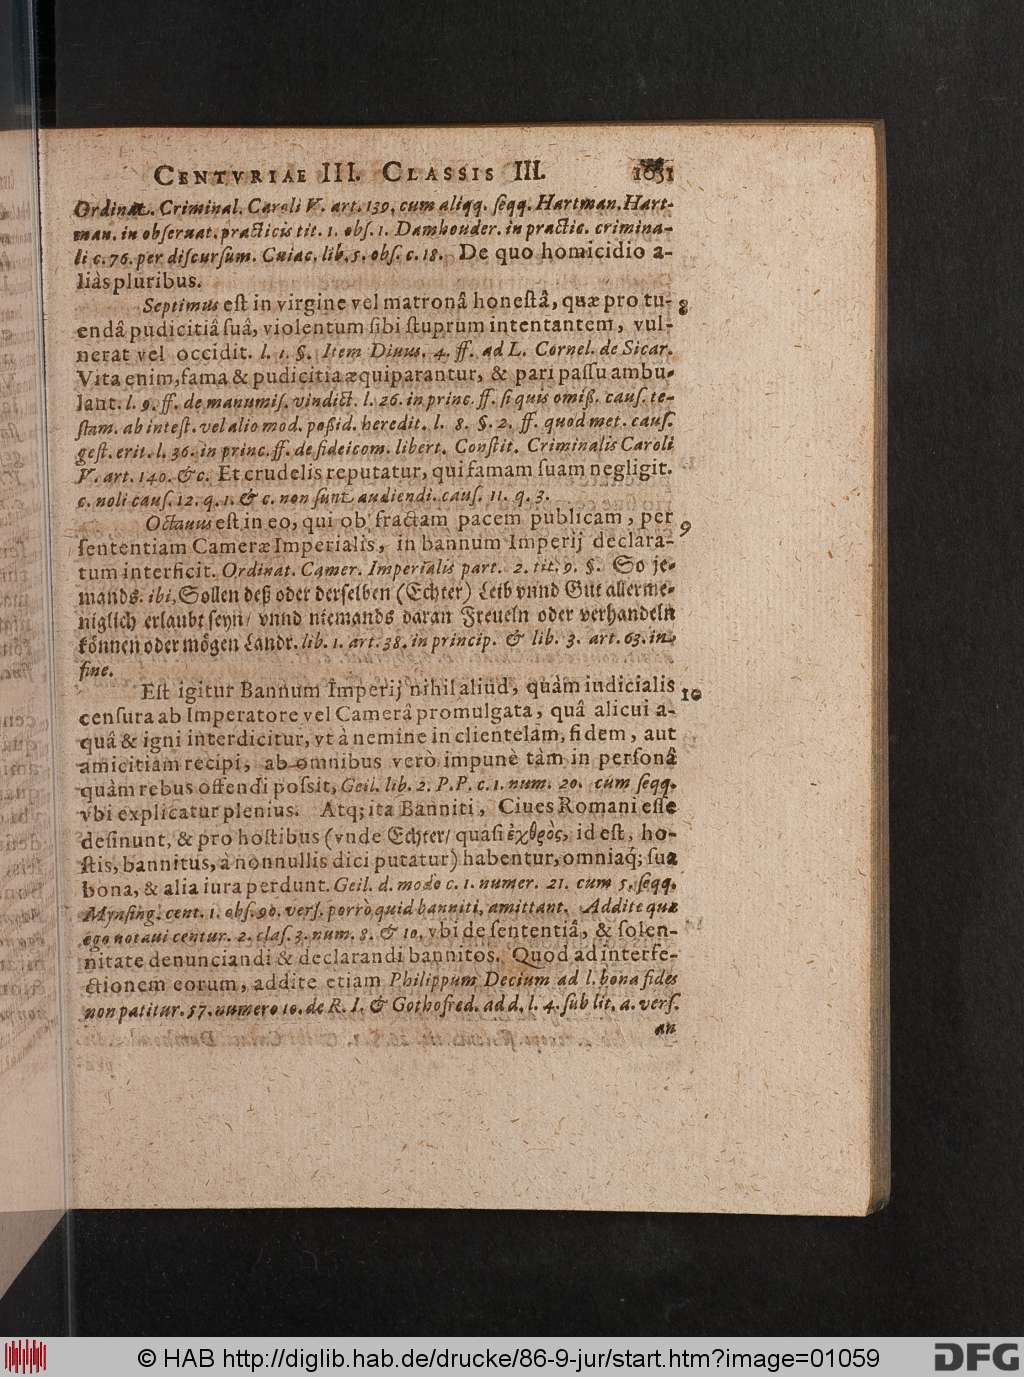 CENTVRIAE III. CLASSIS III. 1051
Ordinat. Criminal. Caroli V. art. 139. cum aliqq. ſeqq. Hartman. Hart-
man. in obſeruat. practicis tit. 1. obſ. 1. Damhouder. in practic. crimina-
li c. 76. per diſcurſum. Cuiac. lib. 5. obſ. c. 18. De quo homicidio a-
liàs pluribus.
Septimus eſt in virgine vel matronâ honeſtâ, quæ pro tu- 8
endâ pudicitiâ ſuâ, violentum ſibi ſtuprum intentantem, vul-
nerat vel occidit. l. 1. §. Item Diuus. 4. ff. ad L. Cornel. de Sicar.
Vita enim, fama & pudicitia æquiparantur, & pari paſſu ambu-
lant. l. 9. ff. de manumiſ. vindict. l. 26. in princ. ff. ſi quis omiß. cauſ. te-
ſtam. ab inteſt. vel alio mod. poßid. heredit. l. 8. §. 2. ff. quod met. cauſ.
geſt. erit. l. 36. in princ. ff. de fideicom. libert. Conſtit. Criminalis Caroli
V. art. 140. &c. Et crudelis reputatur, qui famam ſuam negligit.
c. noli cauſ. 12. q. 1. & c. non ſunt audiendi. cauſ. 11. q. 3.
Octauus eſt in eo, qui ob fractam pacem publicam, per 9
ſententiam Cameræ Imperialis, in bannum Imperij declara-
tum interficit. Ordinat. Camer. Imperialis part. 2. tit. 9. §. So je-
mands. ibi, Sollen deß oder derſelben (Echter) Leib vnnd Gut allerme-
niglich erlaubt ſeyn/ vnnd niemands daran Freueln oder verhandeln
können oder mögen Landt. lib. 1. art. 38. in princip. & lib. 3. art. 63. in
fine.
Eſt igitur Bannum Imperij nihil aliud, quàm iudicialis 10
cenſura ab Imperatore vel Camerâ promulgata, quâ alicui a-
quâ & igni interdicitur, vt à nemine in clientelam, fidem, aut
amicitiam recipi, ab omnibus verò impunè tàm in perſonâ
quàm rebus offendi poſsit, Geil. lib. 2. P. P. c. 1. num. 20. cum ſeqq.
vbi explicatur plenius. Atq; ita Banniti, Ciues Romani eſſe
deſinunt, & pro hoſtibus (vnde Echter/ quaſi ἐχθρὸς, id eſt, ho-
ſtis, bannitus, à nonnullis dici putatur) habentur, omniaq́; ſua
bona, & alia iura perdunt. Geil. d. modo c. 1. numer. 21. cum 5. ſeqq.
Mynſing. cent. 1. obſ. 90. verſ. porrò quid banniti, amittant. Addite quæ
ego notaui centur. 2. claſ. 3. num. 8. & 10. vbi de ſententiâ, & ſolen-
nitate denunciandi & declarandi bannitos. Quod ad interfe-
ctionem eorum, addite etiam Philippum Decium ad l. bona fides
non patitur. 57. numero 10. de R. I. & Gothofred. ad d. l. 4. ſub lit. a. verſ.
an
© HAB http://diglib.hab.de/drucke/86-9-jur/start.htm?image=01059
DFG